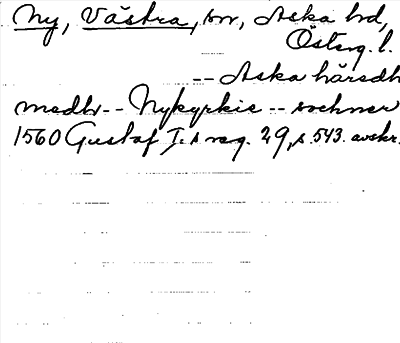 Ny, Västra, sn, Aska hd,
Österg. l.
-- Aska häredh
medh -- Nykyrkie -- sochner
1560 Gustaf I:s reg. 29, s. 543. avskr.